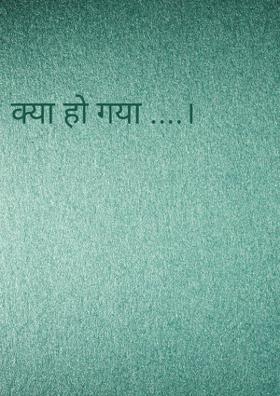 क्या हो गया ....।